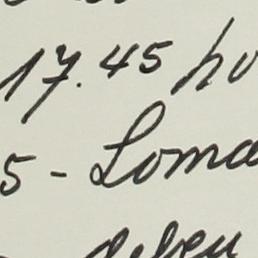 17.45 ho
5 - Loma